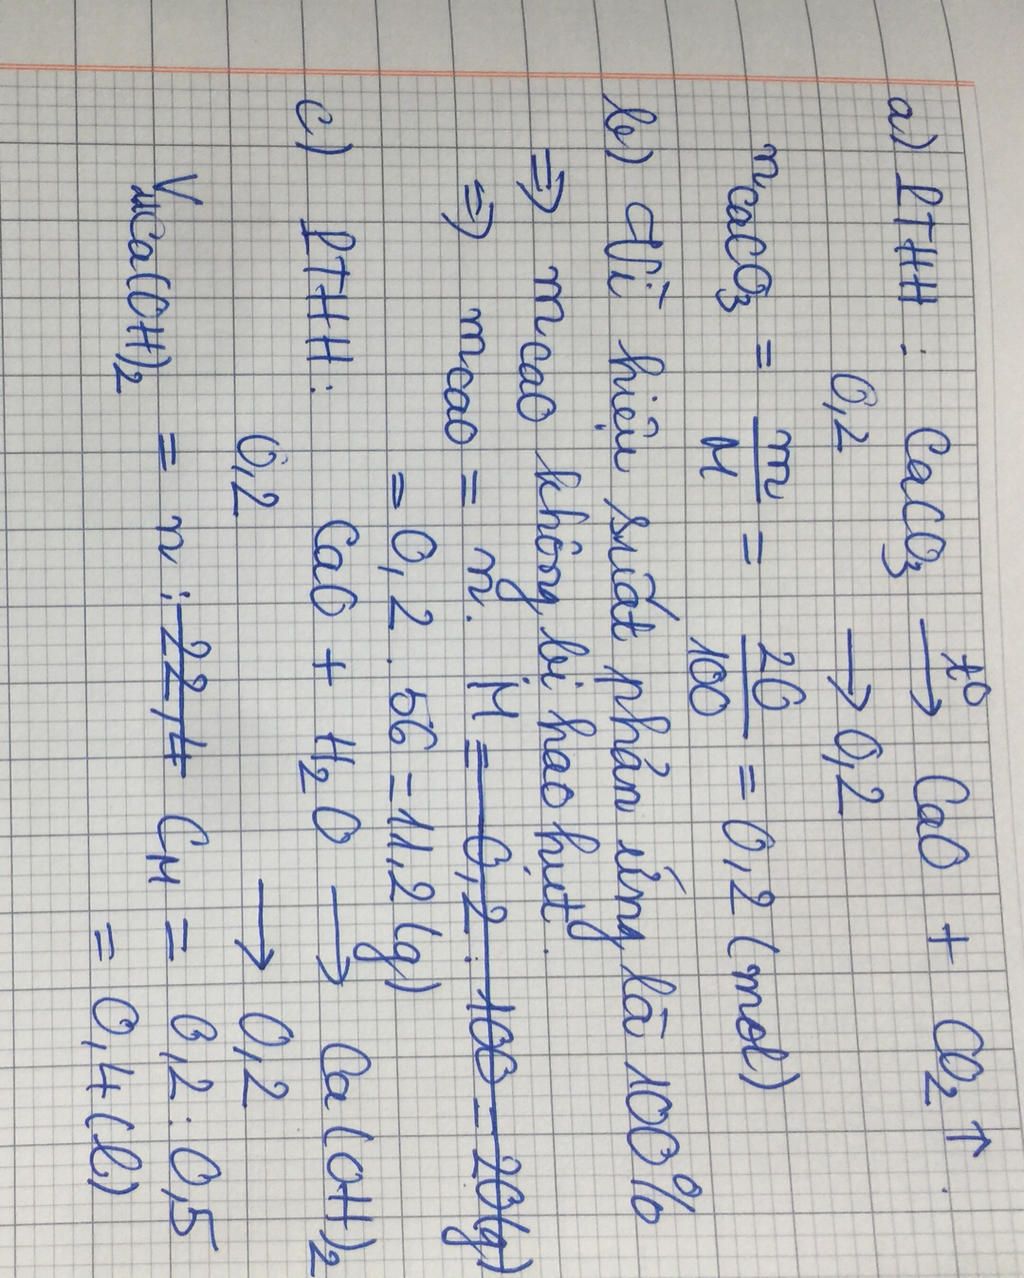 a) PTHH: CaCO₃ —t⁰→ CaO + CO₂↑
0,2 → 0,2
nCaCO₃ = m/M = 20/100 = 0,2 (mol)
b) Vì hiệu suất phản ứng là 100%
=> mCaO không bị hao hụt.
=> mCaO = n. M = 0,2. 100 = 20(g)
= 0,2 . 56 = 11,2 (g)
c) PTHH: CaO + H₂O → Ca(OH)₂
0,2 → 0,2
VCa(OH)₂ = n : 22,4 CM = 0,2 : 0,5
= 0,4 (l)